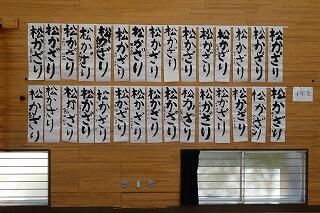 松かざり
松かざり
松かざり
松かざり
松かざり
松かざり
松かざり
松かざり
松かざり
松かざり
松かざり
松かざり
松かざり
松かざり
松かざり
4年生
松かざり
松かざり
松かざり
松かざり
松かざり
松かざり
松かざり
松かざり
松かざり
松かざり
松かざり
松かざり
松かざり
松かざり
松かざり